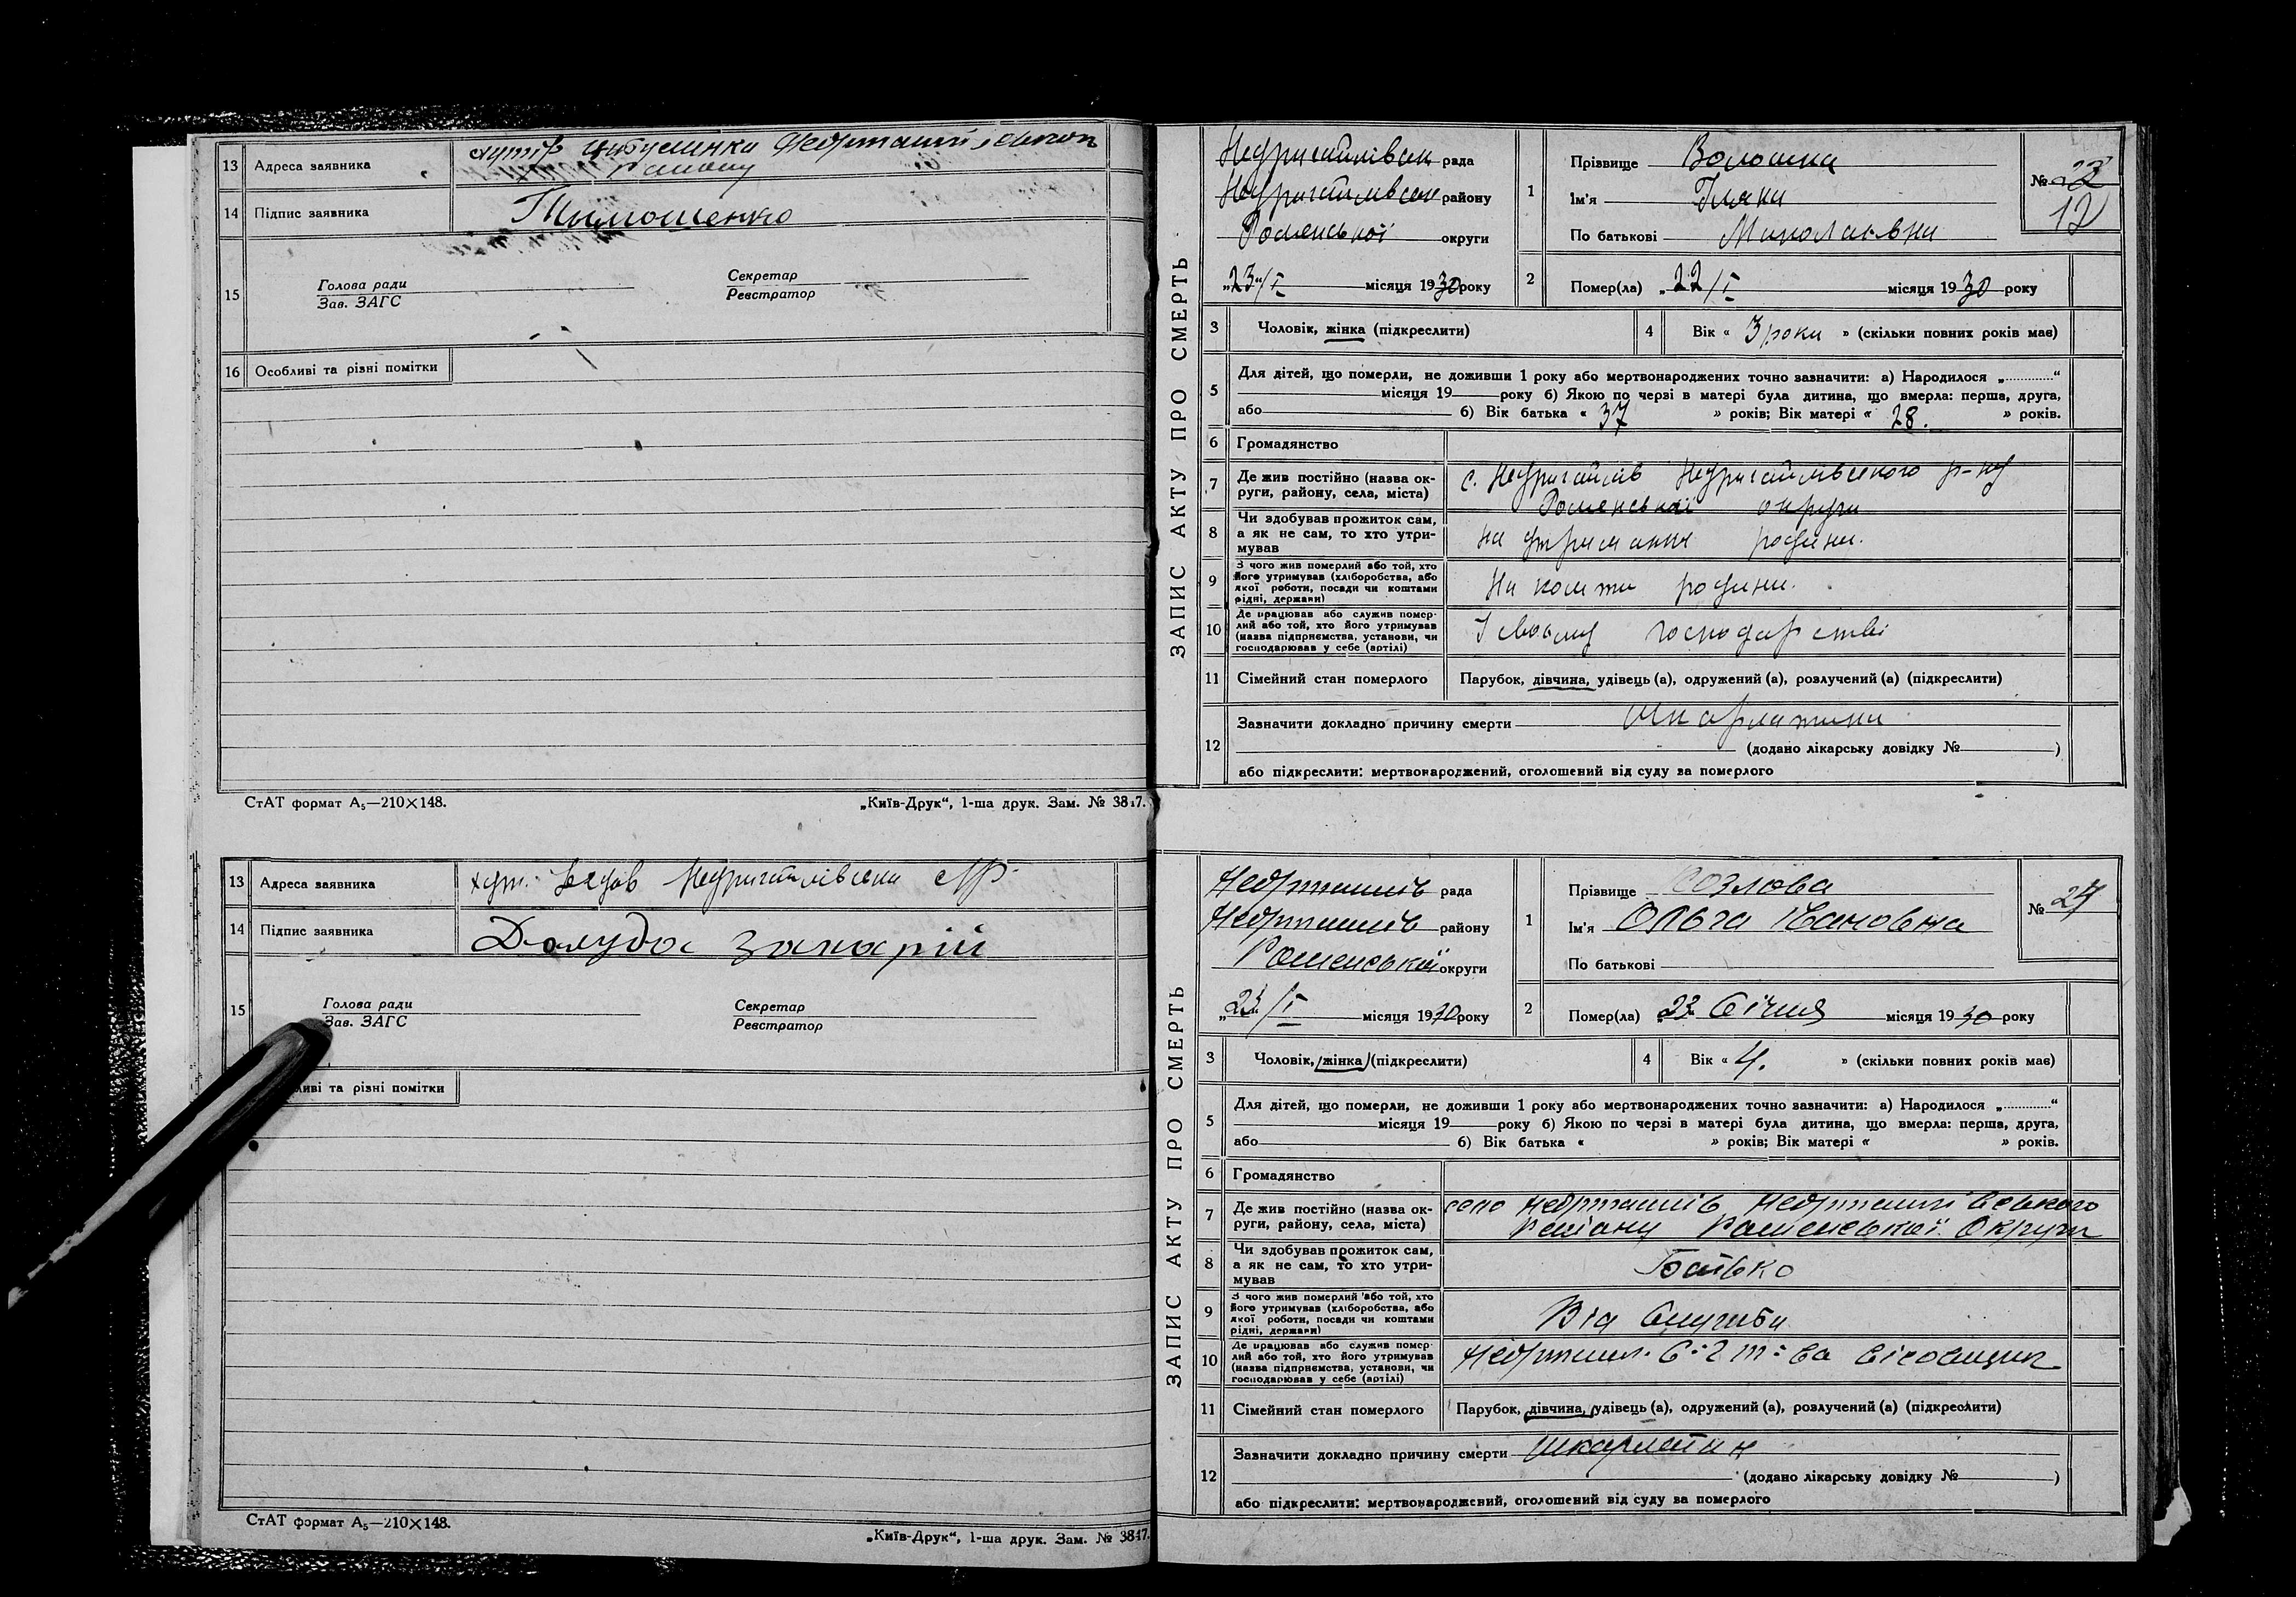 13 Адреса заявника хутір Цибуленки
району
14 Підпис заявника Тимошенко
15 Голова ради
Зав. ЗАГС
Секретар
Реєстратор
16 Особливі та різні помітки
СтАТ формат А₅—210×148.
„Київ-Друк“, 1-ша друк. Зам. № 3847.
13 Адреса заявника хут. Недригайлівськ
14 Підпис заявника Долуда Захарій
15 Голова ради
Зав. ЗАГС
Секретар
Реєстратор
ливі та різні помітки
СтАТ формат А₅—210×148.
„Київ-Друк“, 1-ша друк. Зам. № 3847.
ЗАПИС АКТУ ПРО СМЕРТЬ
Недригайлівськ рада
Недригайлівськ району
Роменської округи
„23“/I місяця 1930 року
1 Прізвище Волошка
Ім'я
По батькові Миколаєвна
№ 23
12
2 Помер(ла) „22/I місяця 1930 року
3 Чоловік, жінка (підкреслити)
4 Вік « 3 роки » (скільки повних років має)
5 Для дітей, що померли, не доживши 1 року або мертвонароджених точно зазначити: а) Народилося „............“
місяця 19 року б) Якою по черзі в матері була дитина, що вмерла: перша, друга,
або б) Вік батька « 37 » років; Вік матері « 28. » років.
6 Громадянство
7 Де жив постійно (назва ок-
руги, району, села, міста) с. Недригайлів Недригайлівського р-ну
Роменської округи
8 Чи здобував прожиток сам,
а як не сам, то хто утри-
мував на утриманні родини.
9 З чого жив померлий або той, хто
його утримував (хліборобства, або
якої роботи, посади чи коштами
рідні, держави) На кошти родини.
10 Де працював або служив помер-
лий або той, хто його утримував
(назва підприємства, установи, чи
господарював у себе (артілі) У своєму господарстві
11 Сімейний стан померлого Парубок, дівчина, удівець (а), одружений (а), розлучений (а) (підкреслити)
12 Зазначити докладно причину смерти шкарлатина
(додано лікарську довідку № )
або підкреслити: мертвонароджений, оголошений від суду за померлого
ЗАПИС АКТУ ПРО СМЕРТЬ
рада
району
Роменської округи
„23“/I місяця 1930 року
1 Прізвище Козлова
Ім'я Ольга Івановна
По батькові
№ 24
2 Помер(ла) 23 Січня місяця 1930 року
3 Чоловік, жінка (підкреслити)
4 Вік « 4. » (скільки повних років має)
5 Для дітей, що померли, не доживши 1 року або мертвонароджених точно зазначити: а) Народилося „............“
місяця 19 року б) Якою по черзі в матері була дитина, що вмерла: перша, друга,
або б) Вік батька « » років; Вік матері « » років.
6 Громадянство
7 Де жив постійно (назва ок-
руги, району, села, міста) село
Роменської Округи
8 Чи здобував прожиток сам,
а як не сам, то хто утри-
мував Батько
9 З чого жив померлий або той, хто
його утримував (хліборобства, або
якої роботи, посади чи коштами
рідні, держави) Від служби
10 Де працював або служив помер-
лий або той, хто його утримував
(назва підприємства, установи, чи
господарював у себе (артілі)
11 Сімейний стан померлого Парубок, дівчина, удівець (а), одружений (а), розлучений (а) (підкреслити)
12 Зазначити докладно причину смерти шкарлатин
(додано лікарську довідку № )
або підкреслити: мертвонароджений, оголошений від суду за померлого